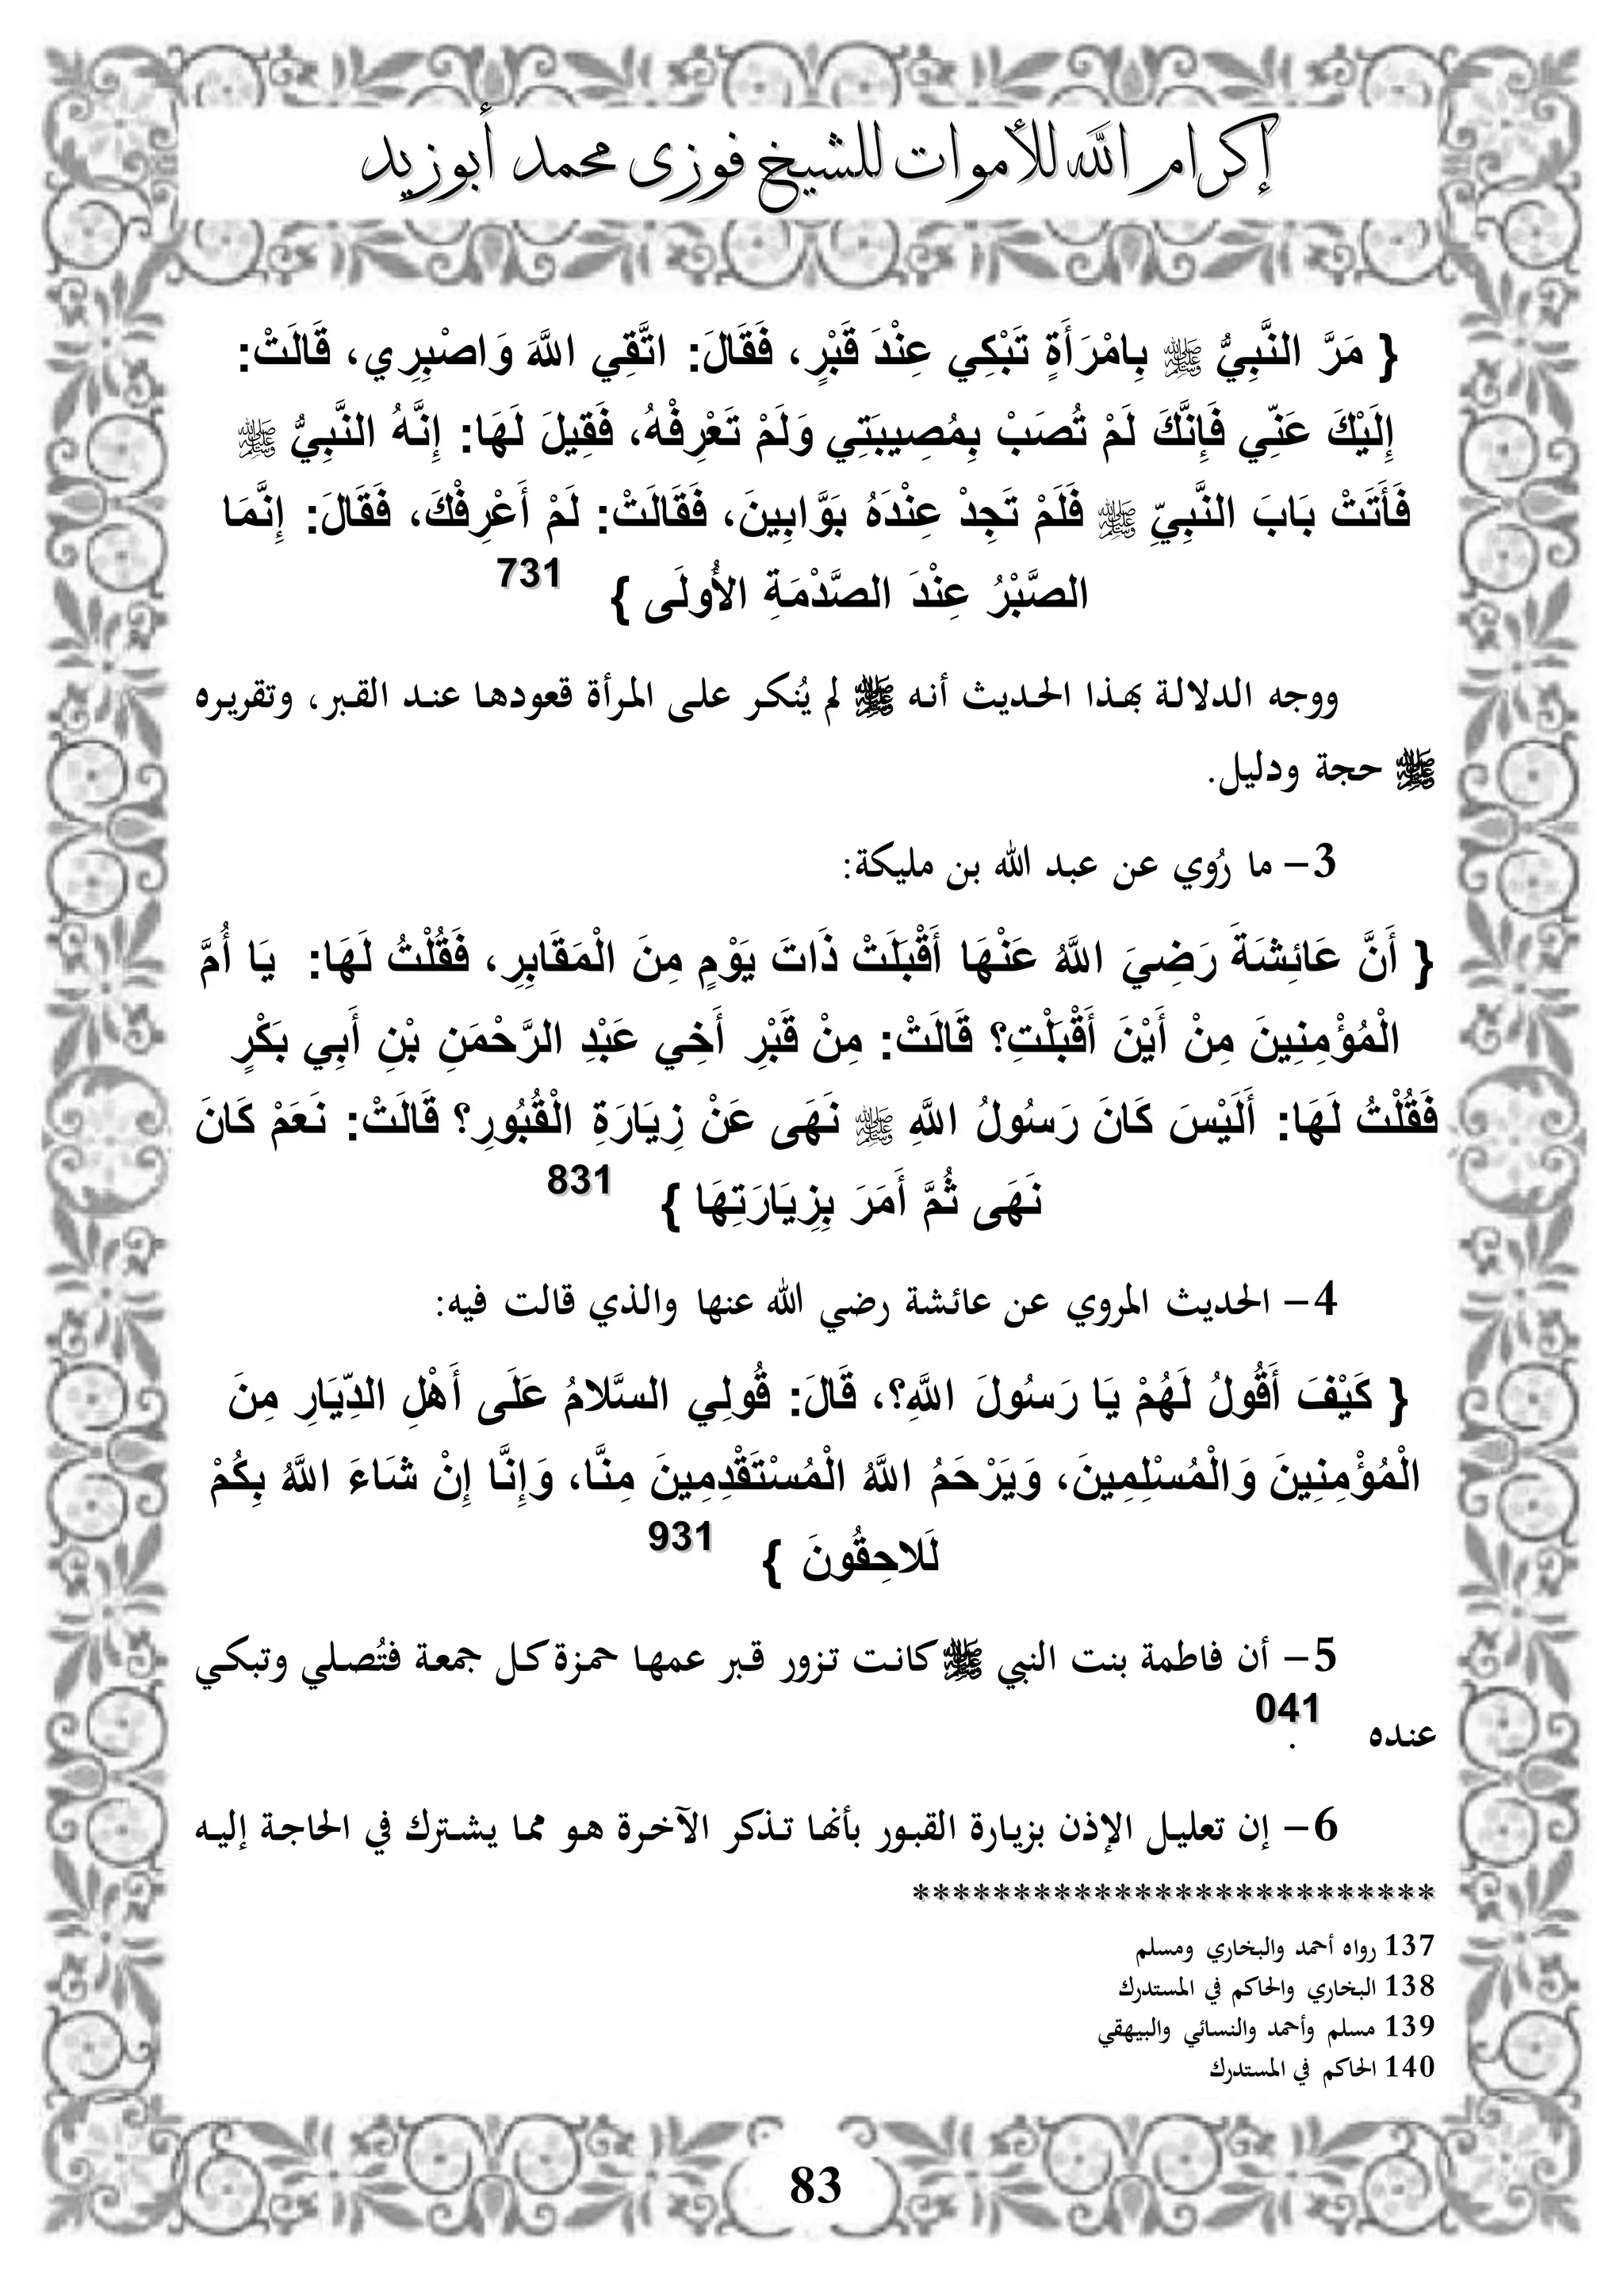 إكرام الله للأموات للشيخ فوزى محمد أبوزيد
{ مَرَّ النَّبِيُّ ﷺ بِامْرَأَةٍ تَبْكِي عِنْدَ قَبْرٍ، فَقَالَ: اتَّقِي اللَّهَ وَاصْبِرِي، قَالَتْ:
إِلَيْكَ عَنِّي فَإِنَّكَ لَمْ تُصَبْ بِمُصِيبَتِي وَلَمْ تَعْرِفْهُ، فَقِيلَ لَهَا: إِنَّهُ النَّبِيُّ ﷺ
فَأَتَتْ بَابَ النَّبِيِّ ﷺ فَلَمْ تَجِدْ عِنْدَهُ بَوَّابِينَ، فَقَالَتْ: لَمْ أَعْرِفْكَ، فَقَالَ: إِنَّمَا
الصَّبْرُ عِنْدَ الصَّدْمَةِ الأُولَى } 731
ووجه الدلالة بهذا الحديث أنه ﷺ لم يُنكر على المرأة قعودها عند القبر، وتقريره
ﷺ حجة ودليل.
3- ما رُوي عن عبد الله بن مليكة:
{ أَنَّ عَائِشَةَ رَضِيَ اللَّهُ عَنْهَا أَقْبَلَتْ ذَاتَ يَوْمٍ مِنَ الْمَقَابِرِ، فَقُلْتُ لَهَا: يَا أُمَّ
الْمُؤْمِنِينَ مِنْ أَيْنَ أَقْبَلْتِ؟ قَالَتْ: مِنْ قَبْرِ أَخِي عَبْدِ الرَّحْمَنِ بْنِ أَبِي بَكْرٍ
فَقُلْتُ لَهَا: أَلَيْسَ كَانَ رَسُولُ اللَّهِ ﷺ نَهَى عَنْ زِيَارَةِ الْقُبُورِ؟ قَالَتْ: نَعَمْ كَانَ
نَهَى ثُمَّ أَمَرَ بِزِيَارَتِهَا } 831
4- الحديث المروي عن عائشة رضي الله عنها والذي قالت فيه:
{ كَيْفَ أَقُولُ لَهُمْ يَا رَسُولَ اللَّهِ؟، قَالَ: قُولِي السَّلامُ عَلَى أَهْلِ الدِّيَارِ مِنَ
الْمُؤْمِنِينَ وَالْمُسْلِمِينَ، وَيَرْحَمُ اللَّهُ الْمُسْتَقْدِمِينَ مِنَّا، وَإِنَّا إِنْ شَاءَ اللَّهُ بِكُمْ
لَلاحِقُونَ } 931
5- أن فاطمة بنت النبي ﷺ كانت تزور قبر عمها حمزة كل جمعة فتُصلي وتبكي
عنده 041 .
6- إن تعليل الإذن بزيارة القبور بأنها تذكر الآخرة هو مما يشترك في الحاجة إليه
**************************
137 رواه أحمد والبخاري ومسلم
138 البخاري والحاكم في المستدرك
139 مسلم وأحمد والنسائي والبيهقي
140 الحاكم في المستدرك
83